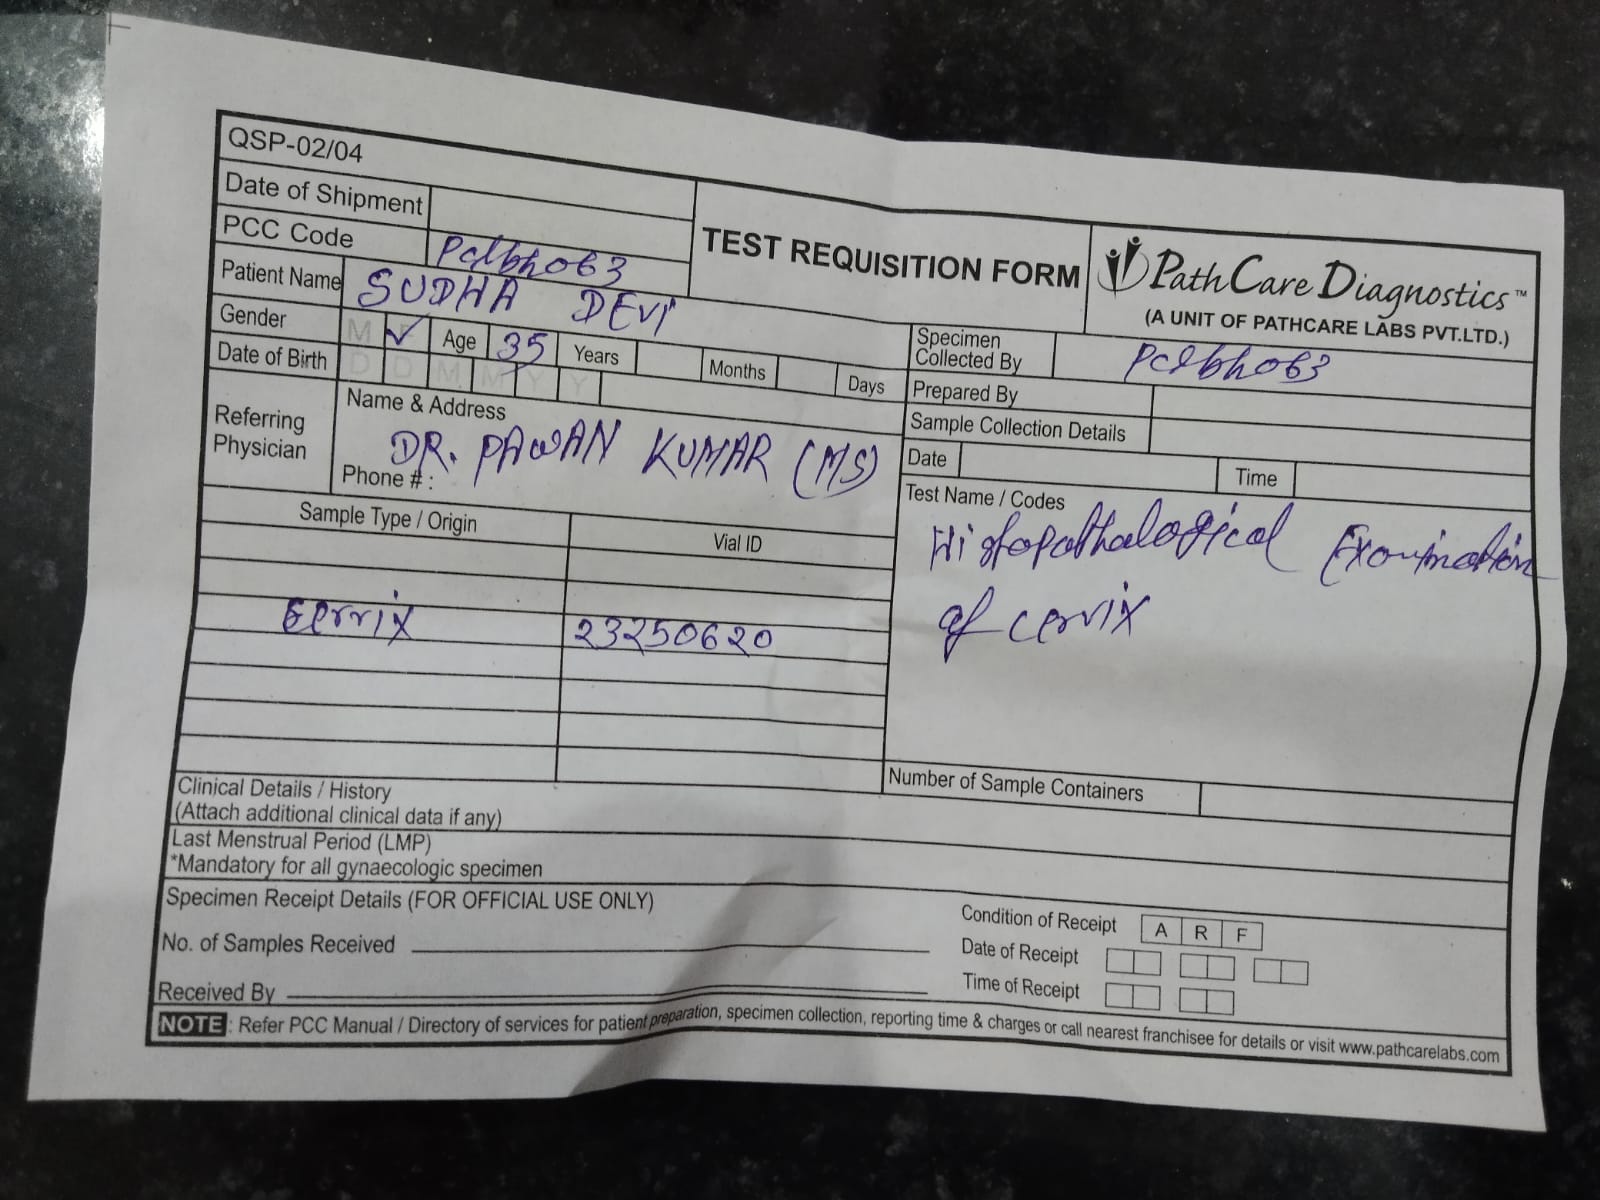 QSP-02/04
Date of Shipment
PCC Code pclbho63
TEST REQUISITION FORM
PathCare Diagnostics™
(A UNIT OF PATHCARE LABS PVT.LTD.)
Patient Name SUDHA DEVI
Gender M F ✓ Age 35 Years Months Days
Date of Birth D D M M Y Y
Specimen
Collected By pclbho63
Prepared By
Sample Collection Details
Date Time
Referring
Physician
Name & Address
DR. PAWAN KUMAR (MS)
Phone # :
Sample Type / Origin Vial ID
Cervix 23250620
Test Name / Codes
Histopathalogical Examination
of cervix
Number of Sample Containers
Clinical Details / History
(Attach additional clinical data if any)
Last Menstrual Period (LMP)
*Mandatory for all gynaecologic specimen
Specimen Receipt Details (FOR OFFICIAL USE ONLY)
No. of Samples Received
Received By
Condition of Receipt A R F
Date of Receipt
Time of Receipt
NOTE : Refer PCC Manual / Directory of services for patient preparation, specimen collection, reporting time & charges or call nearest franchisee for details or visit www.pathcarelabs.com